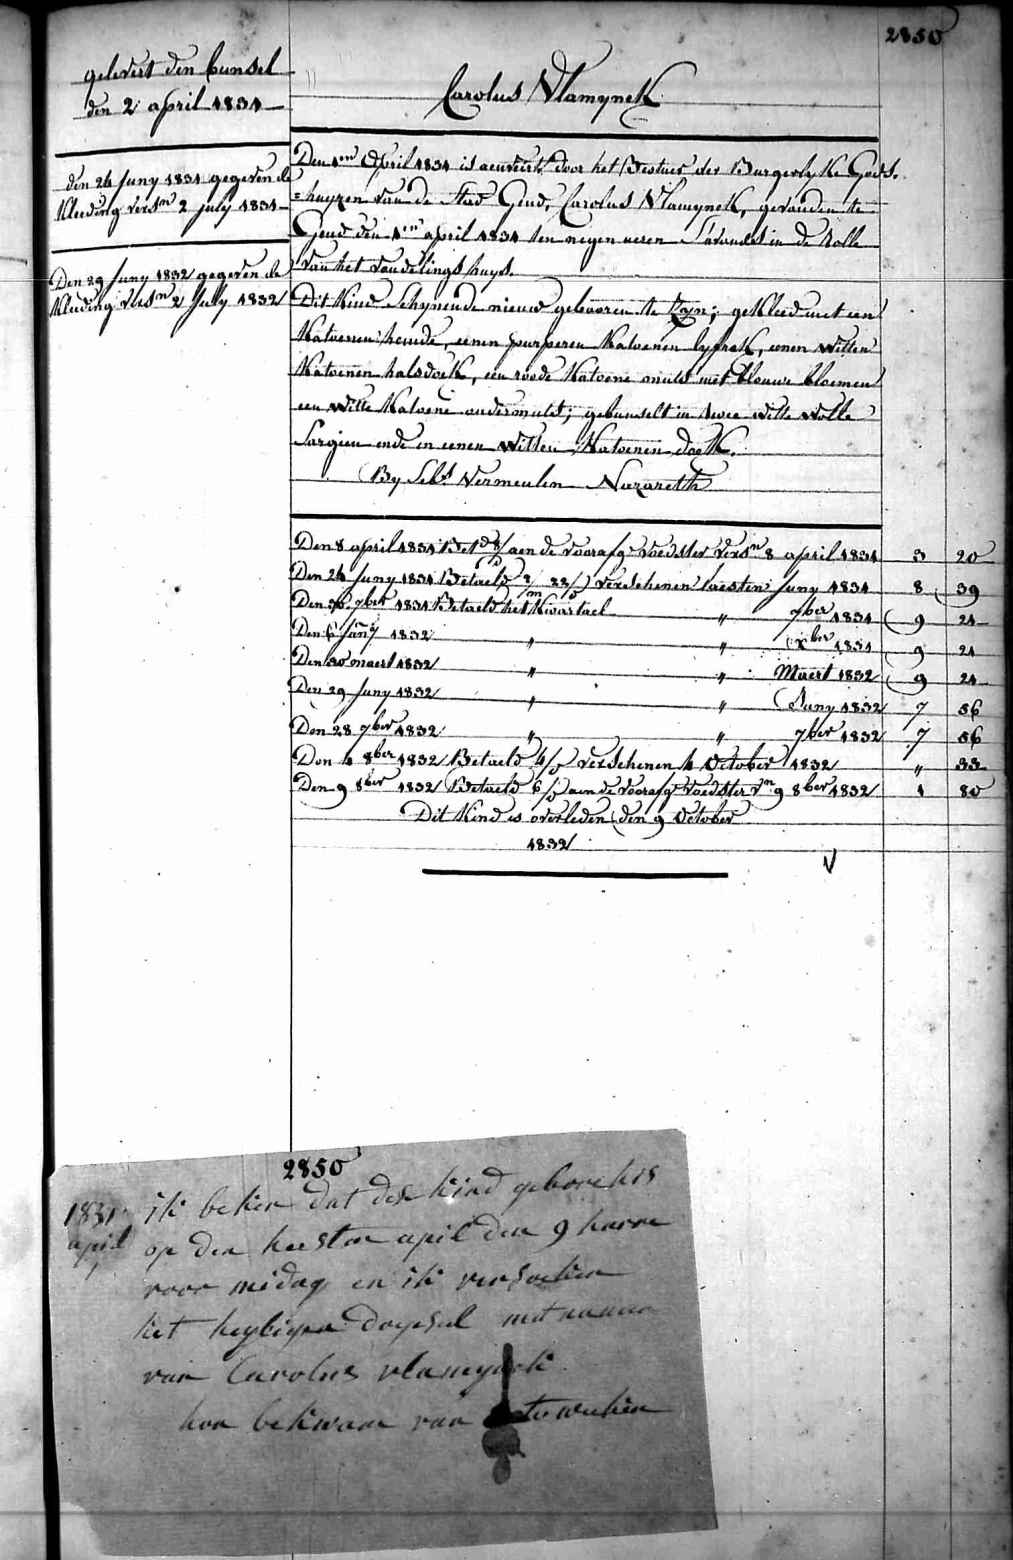 2850
gelevert den bunsel
den 2 april 1831
den 24 Juny 1831 gegeven de
Kleeding versn 2 July 1831
Den 29 Juny 1832 gegeven de
Kleeding versn 2 July 1832
Carolus Vlamynck
Den 1en April 1831 is aenveird door het Bestier der Burgerlyke Gods=
=huyzen van de Stad Gend, Carolus Vlamynck, gevonden te
Gend den 1en april 1831 ten negen uren S'avonds in de Rolle
van het vondelings huys.
Dit Kind Schynende nieuw gebooren te Zyn; gekleed met een
Katoenen hemde, eenen purperen Katoenen lyfrok, eenen witten
Katoenen halsdoek, een roode Katoene muts met blauwe bloemen
een witte Katoene ondermuts; gebunselt in twee witte wolle
Sargien ende in eenen witten Katoenen doek.
By Sebt Vermeulen Nazareth
Den 8 april 1831 Betd 8/d aen de voorafge voedster versn 8 april 1831 3 20
Den 24 Juny 1831 Betaeld 2/m 22/d verschenen laesten Juny 1831 8 39
Den 30 7ber 1831 Betaeld het Kwartael " 7ber 1831 9 24
Den 6 Jany 1832 " " Xber 1831 9 24
Den 30 maert 1832 " " Maert 1832 9 24
Den 29 Juny 1832 " " Juny 1832 7 56
Den 28 7ber 1832 " " 7ber 1832 7 56
Den 4 8ber 1832 Betaeld 4/d verschenen 4 October 1832 " 33
Den 9 8ber 1832 Betaeld 5/d aen de voorafge voedster vn 9 8ber 1832 1 80
Dit Kind is overleden den 9 October
1832
2850
1831 ik beken dat des kind geboren is
apil op den heesten apil den 9 hurre
1 voor midag en ik versoeken
het heyligen doepsel met naemen
van Carolus vlamynck